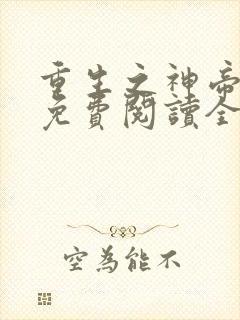 重生之神帝
免費閱讀全
空為能不